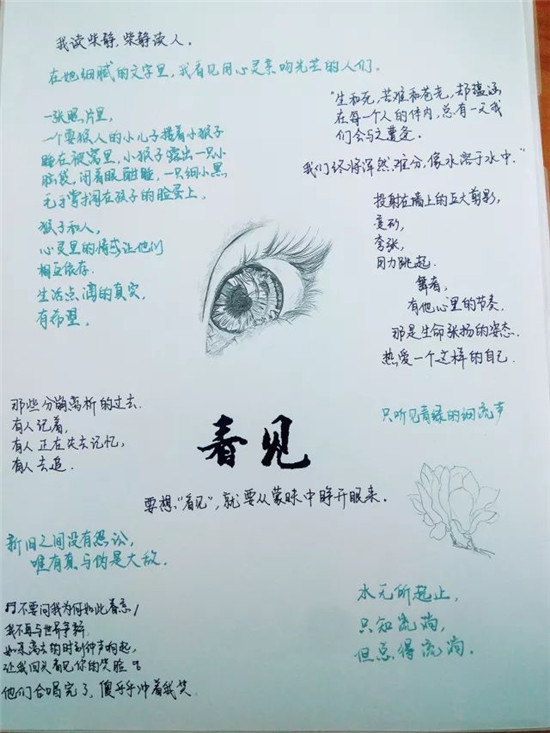 我读柴静，柴静读人。
在她细腻的文字里，我看见用心灵亲吻光芒的人们。
一张照片里，
一个耍猴人的小儿子搂着小猴子
睡在被窝里，小猴子露出一只小
脑袋，闭着眼酣睡，一只细小黑
毛手掌才搁在孩子的脸蛋上，
猴子和人，
心灵里的情感让他们
相互依存．
生活点滴的真实，
有希望。
“生和死，苦难和苍老，却蕴涵
在每一个人的体内，总有一天我
们会与之遭逢。
我们终将浑然难分，像水溶于水中．”
投射在墙上的巨大剪影，
变形，
夸张，
用力跳起．
舞者，
有他心里的节奏．
那是生命张扬的姿态．
热爱一个这样的自己．
那些分崩离析的过去．
有人记着，
有人正在失去记忆，
有人去追．
看见
只听见青绿的细流声
要想“看见”，就要从蒙昧中睁开眼来．
新旧之间没有怨讼，
唯有真与伪是大敌．
水元所起止，
只知流淌，
但总得流淌．
不要问我为何如此眷恋
我不再与世界争辩
如果离去的时刻钟声响起，
让我回头看见你的笑脸
他们合唱完了，傻乎乎冲着我笑